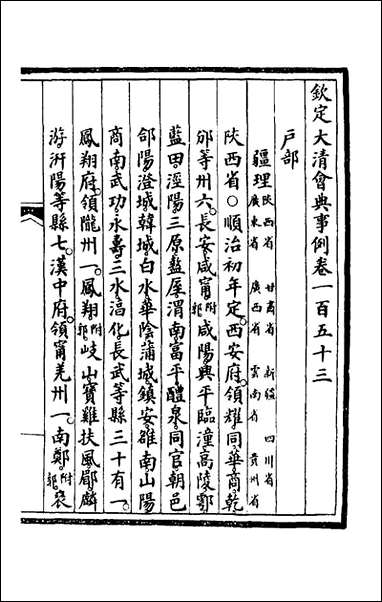 欽定大清會典事例卷一百五十三
戶部
疆理陝西省 甘肅省 新疆 四川省
廣東省 廣西省 雲南省 貴州省
陝西省○順治初年定西安府領耀同華商乾
邠等州六長安咸甯附郭咸陽興平臨潼高陵鄠
藍田涇陽三原盩厔渭南富平醴泉同官朝邑
郃陽澄城韓城白水華陰蒲城鎮安雒南山陽
商南武功永壽三水淳化長武等縣三十有一
鳳翔府領隴州一鳳翔附郭岐山寶雞扶風郿麟
游汧陽等縣七漢中府領甯羌州一南鄭附郭襃